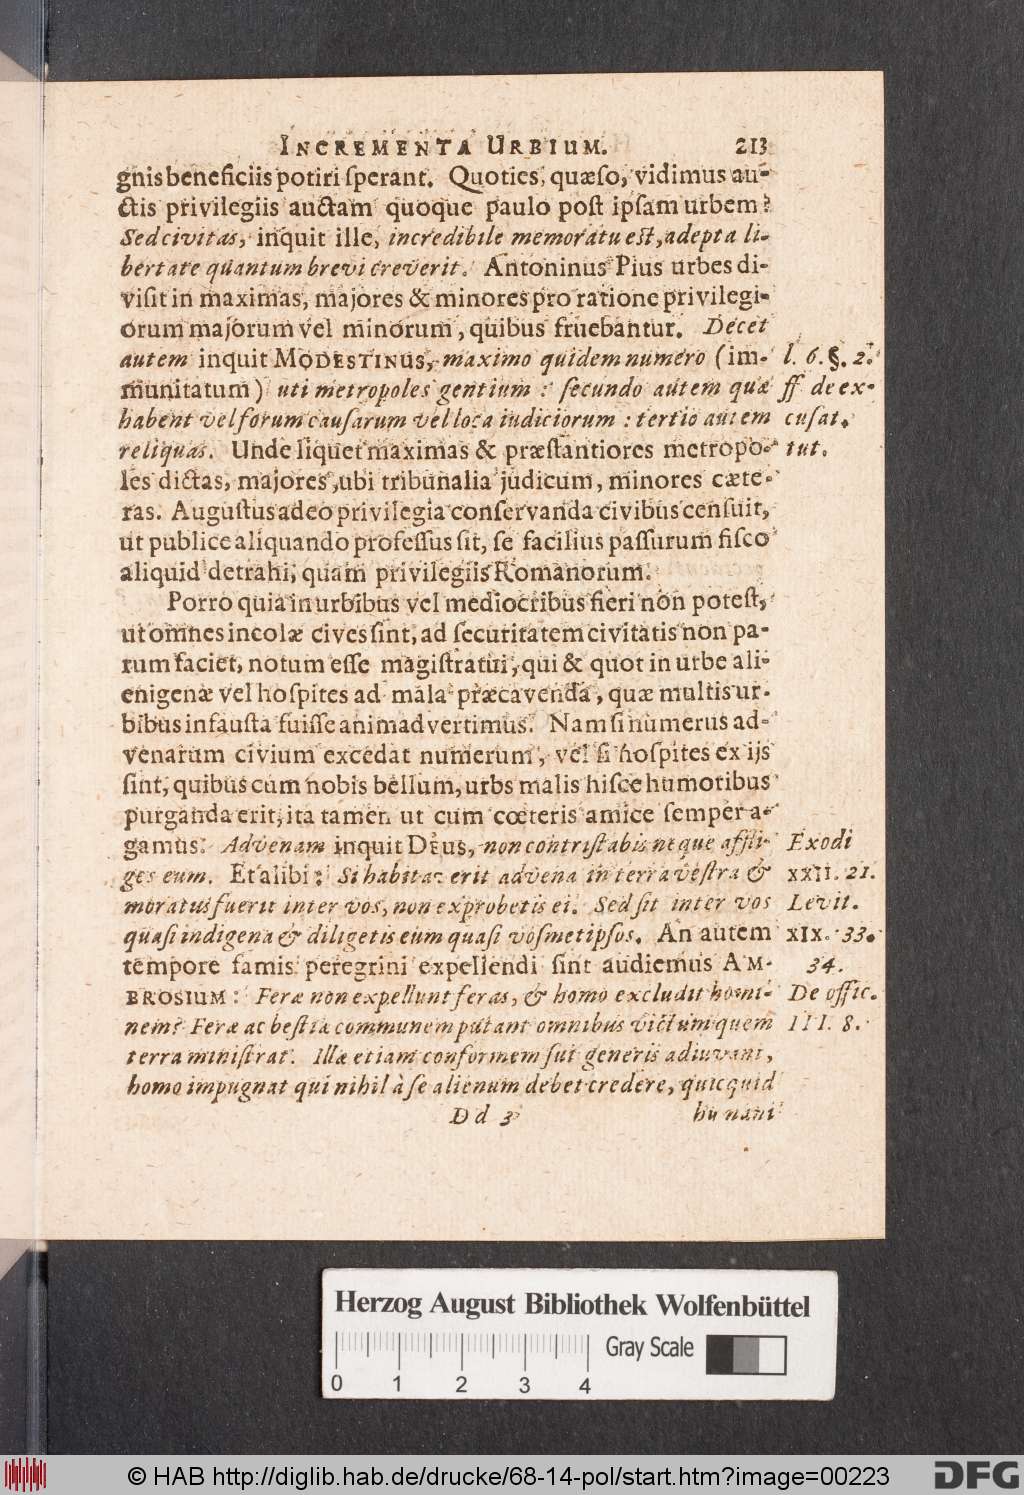 INCREMENTA URBIUM. 213
gnis beneficiis potiri ſperant. Quoties, quæſo, vidimus au-
ctis privilegiis auctam quoque paulo poſt ipſam urbem?
Sed civitas, inquit ille, incredibile memoratu eſt, adepta li-
bertate quantum brevi creverit. Antoninus Pius urbes di-
viſit in maximas, majores & minores pro ratione privilegi-
orum majorum vel minorum, quibus fruebantur. Decet
autem inquit MODESTINUS, maximo quidem numero (im- l. 6. §. 2.
munitatum) uti metropoles gentium : ſecundo autem quæ ff de ex-
habent vel forum cauſarum vel loca iudiciorum : tertio autem cuſat.
reliquas. Unde liquet maximas & præſtantiores metropo- tut.
les dictas, majores, ubi tribunalia judicum, minores cæte-
ras. Auguſtus adeo privilegia conſervanda civibus cenſuit,
ut publice aliquando profeſſus ſit, ſe facilius paſſurum fiſco
aliquid detrahi, quam privilegiis Romanorum.
Porro quia in urbibus vel mediocribus fieri non poteſt,
ut omnes incolæ cives ſint, ad ſecuritatem civitatis non pa-
rum faciet, notum eſſe magiſtratui, qui & quot in urbe ali-
enigenæ vel hoſpites ad mala præcavenda, quæ multis ur-
bibus infauſta fuiſſe animadvertimus. Nam ſi numerus ad-
venarum civium excedat numerum, vel ſi hoſpites ex ijs
ſint, quibus cum nobis bellum, urbs malis hiſce humoribus
purganda erit, ita tamen ut cum cœteris amice ſemper a-
gamus. Advenam inquit DEUS, non contriſtabis neque affli- Exodi
ges eum. Et alibi: Si habitac erit advena in terra veſtra & XXII. 21.
moratus fuerit inter vos, non exprobetis ei. Sed ſit inter vos Levit.
quaſi indigena & diligetis eum quaſi voſmetipſos. An autem XIX. 33.
tempore famis peregrini expellendi ſint audiemus AM- 34.
BROSIUM: Feræ non expellunt feras, & homo excludit homi- De offic.
nem? Feræ ac beſtiæ communem putant omnibus victum quem III. 8.
terra miniſtrat. Illæ etiam conformem ſui generis adiuvant,
homo impugnat qui nihil à ſe alienum debet credere, quicquid
Dd 3 humani
Herzog August Bibliothek Wolfenbüttel
Gray Scale
0 1 2 3 4
© HAB http://diglib.hab.de/drucke/68-14-pol/start.htm?image=00223 DFG